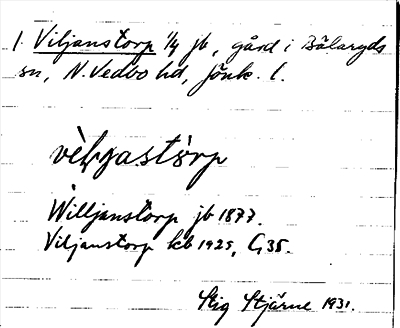 1. Viljanstorp 1/4 jb, gård i Bälaryds
sn, N. Vedbo hd, Jönk. l.
Willjanstorp jb 1877.
Viljanstorp kb 1925, G35.
Stig Stjärne 1931.